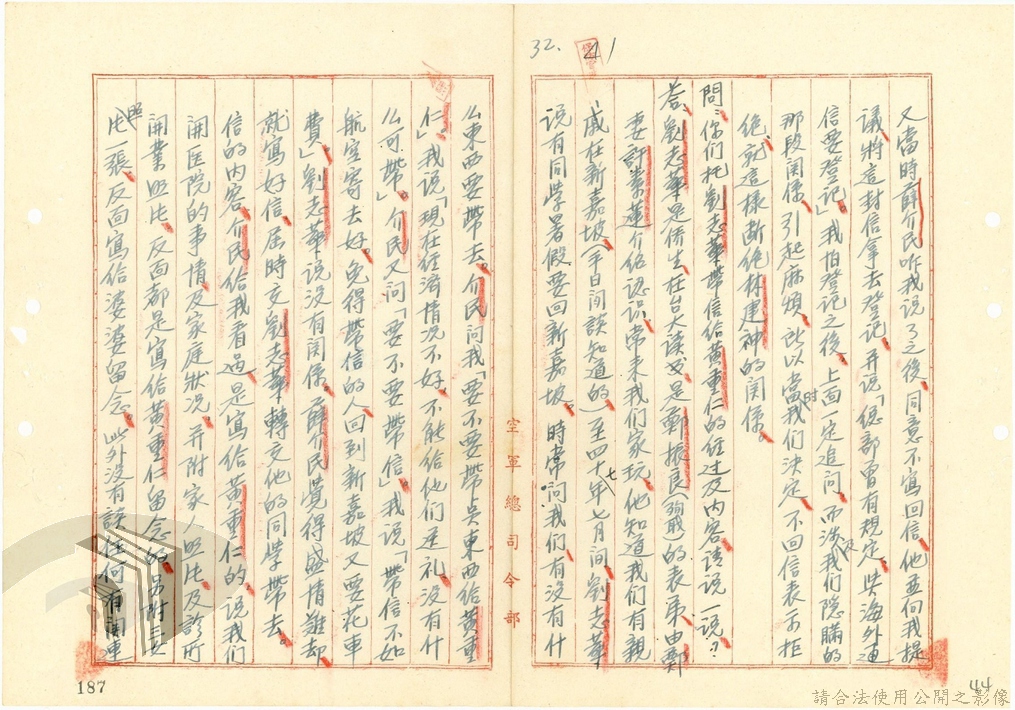 32.
又當時薛介民昨我說了之後，同意不寫回信，他並向我提
議，將這封信拿去登記，并說「總部曾有規定，與海外通
信要登記」，我怕登記之後，上面一定追問，而涉及我們隱瞞的
那段関係，引起麻煩，所以當時我們決定，不回信表示拒
绝，就這樣断绝林建神的関係。
問：你们托劉志華帶信給黄重仁的经过及内容，请说一说？
答：劉志華是僑生，在台大读书，是鄭振民的表弟，由鄭
妻許貴蓮介绍認识，常来我们家玩，他知道我们有親
戚在新嘉坡，（平日间談知道的）至四十七年七月间，劉志華
说有同学暑假要回新嘉坡，時常问我们，有没有什
么東西要帶去，介民问我「要不要带点東西给黄重
仁」，我说「现在经濟情况不好，不能给他们送礼，没有什
么可带」，介民又问「要不要带信」，我说「带信不如
航空寄去好，免得带信的人回到新嘉坡又要花車
費」，劉志華说没有関係，薛介民覺得盛情难却，
就寫好信，届時交劉志華轉交他的同学带去，
信的内容，介民给我看过，是寫给黄重仁的，说我们
開医院的事情，及家庭狀况，并附家人照片，及診所
開業照片，反面都是寫给黄重仁留念的，另附三
照片一張，反面寫给婆婆留念，此外没有談任何有関連
空軍總司令部
187
44
請合法使用公開之影像